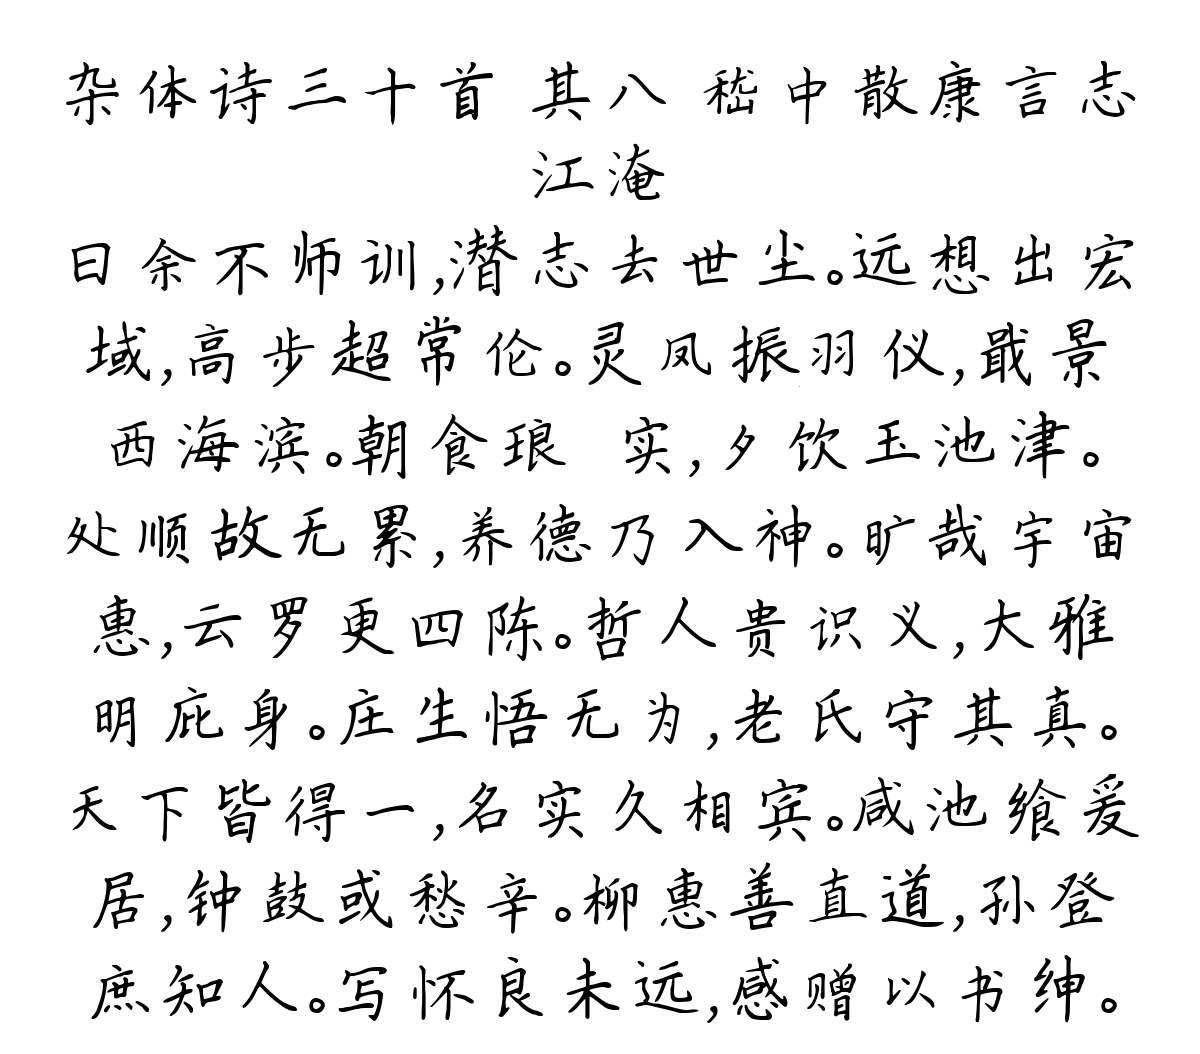 杂体诗三十首 其八 嵇中散康言志
江淹
曰余不师训,潜志去世尘。远想出宏
域,高步超常伦。灵凤振羽仪,戢景
西海滨。朝食琅 实,夕饮玉池津。
处顺故无累,养德乃入神。旷哉宇宙
惠,云罗更四陈。哲人贵识义,大雅
明庇身。庄生悟无为,老氏守其真。
天下皆得一,名实久相宾。咸池飨爰
居,钟鼓或愁辛。柳惠善直道,孙登
庶知人。写怀良未远,感赠以书绅。